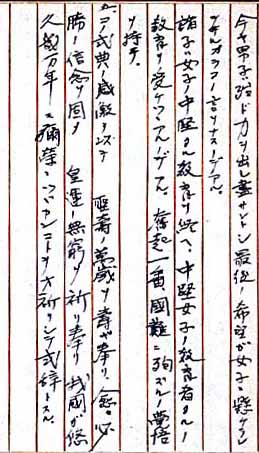 今ヤ男子ハ殆ド力ヲ出シ盡サントシ最後ノ希望ガ女子ニ懸ケラ
諸子ハ女子ノ中堅タル教育ヲ終ヘ、中堅女子ノ教育者タルノ
教育ヲ受ケツツアルノデアル。奮起一番、國難ニ殉ズルノ覺悟
ヲ持チ、
コノ式典ノ感激ヲ以テ 聖壽ノ萬歳ヲ壽ギ奉リ、愈〻必
勝ノ信念ヲ固メ 皇運ノ無窮ヲ祈リ奉リ 我國ガ悠
久萬年ニ彌榮ニツヾカンコトヲ祈リツテ式辞トスル